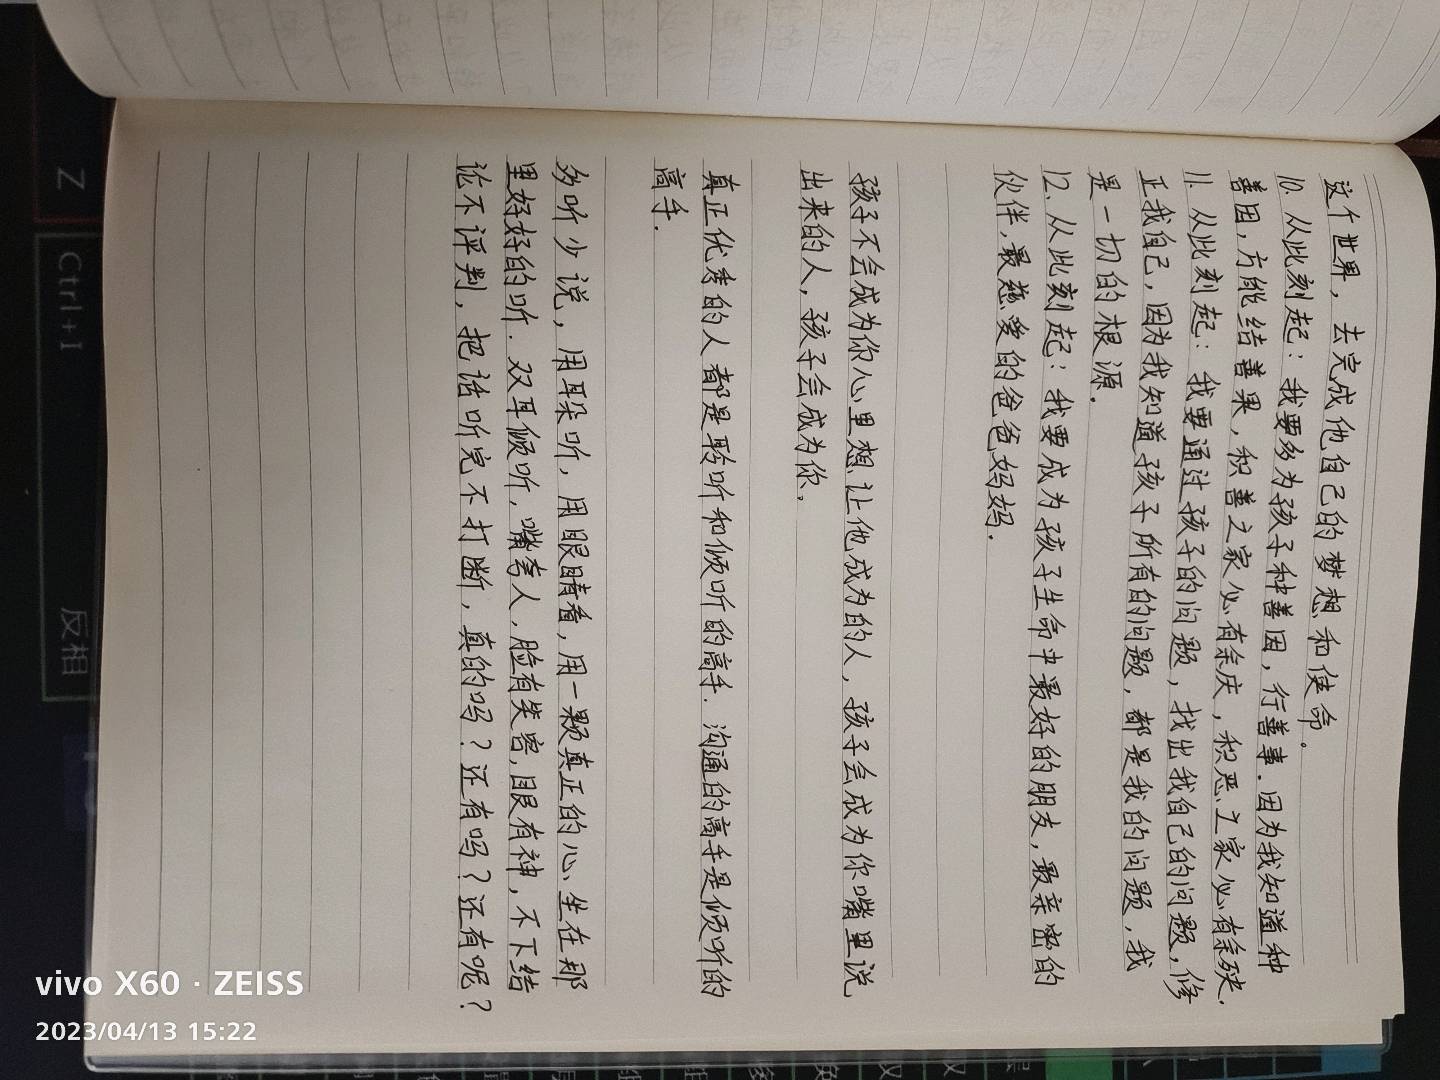 这个世界，去完成他自己的梦想和使命。
10、从此刻起：我要多为孩子种善因，行善事.因为我知道种
善因，方能结善果，积善之家必有余庆，积恶之家必有余殃.
11、从此刻起：我要通过孩子的问题，找出我自己的问题，修
正我自己，因为我知道孩子所有的问题，都是我的问题，我
是一切的根源.
12、从此刻起：我要成为孩子生命中最好的朋友，最亲密的
伙伴，最慈爱的爸爸妈妈.
孩子不会成为你心里想让他成为的人，孩子会成为你嘴里说
出来的人，孩子会成为你。
真正优秀的人都是聆听和倾听的高手.沟通的高手是倾听的
高手.
多听少说，用耳朵听，用眼睛看，用一颗真正的心坐在那
里好好的听.双耳倾听，嘴夸人，脸有笑容，眼有神，不下结
论不评判，把话听完不打断，真的吗？还有吗？还有呢？
Z
Ctrl+I
反相
vivo X60 · ZEISS
2023/04/13 15:22